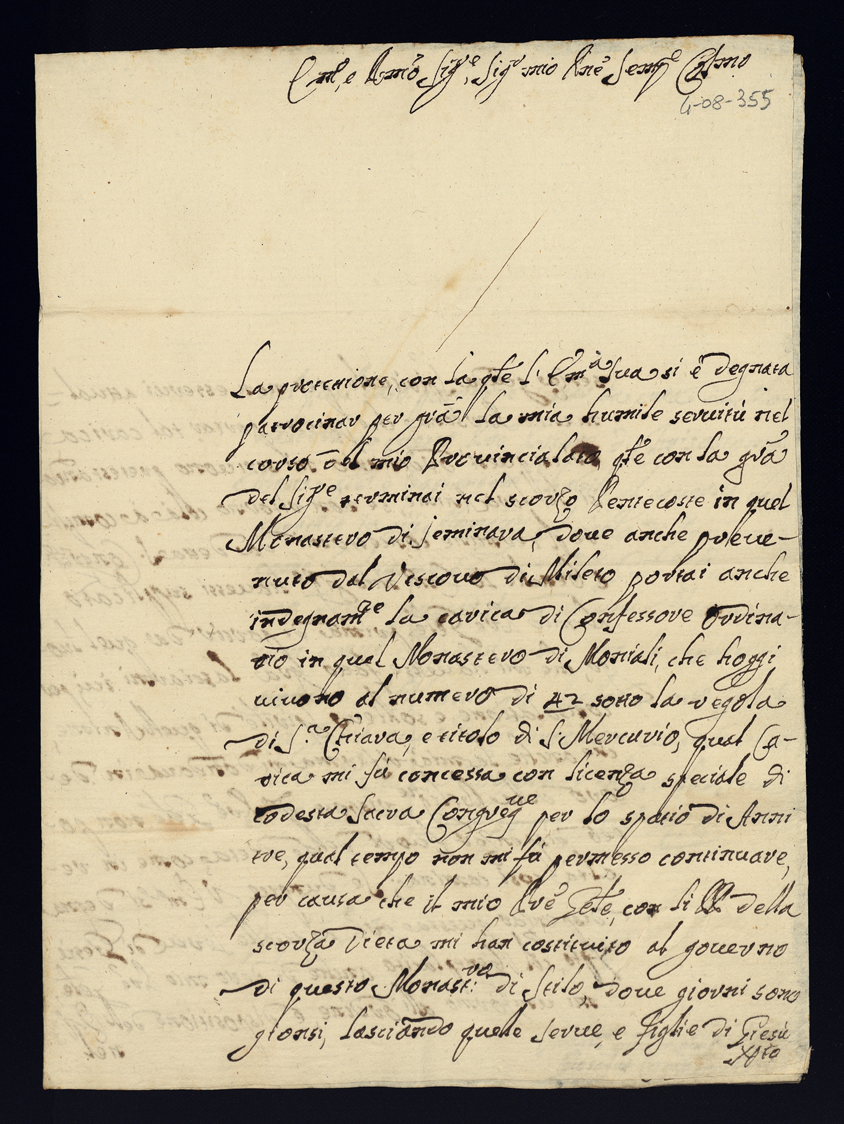 Em.º, e Rmō Sig.re, Sig.r mio Pnē Semp.e Colmo
4-08-355
La protettione, con la qle l'Em.a Sua si è degnata
patrocinar per grā la mia humile servitù nel
corso del mio Provincialato qle con la grā
del Sig.re terminai nel scorso Pentecoste in quel
Monastero di Seminara, dove anche preve-
nuto dal Vescovo di Mileto portai anche
indegnam.te la carica di Confessore Ordina-
rio in quel Monastero di Moniali, che hoggi
vivono al numero di 42 sotto la regola
di S.ta Chiara, e titolo di S. Mercurio, qual Ca-
rica mi fù concessa con licenza speciale di
codesta Sacra Congreg.ne per lo spatio di Anni
tre, qual tempo non mi fù permesso continuare,
per causa che il mio Rrē Gnle, con li RR della
scorsa Dieta mi han costituito al governo
di questo Monast.ro di Stilo, dove giorni sono
gionsi, lasciando quelle serve, e figlie di Giesù
Xpto